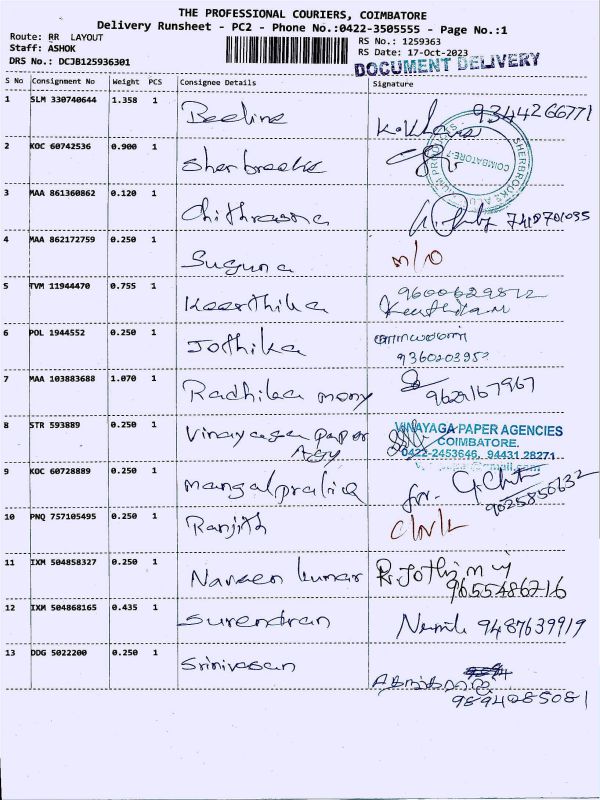 THE PROFESSIONAL COURIERS, COIMBATORE
Delivery Runsheet - PC2 - Phone No.:0422-3505555 - Page No.:1
Route: RR LAYOUT
Staff: ASHOK
DRS No.: DCJB125936301
RS No.: 1259363
RS Date: 17-Oct-2023
DOCUMENT DELIVERY
S No Consignment No Weight PCS Consignee Details Signature
1 SLM 330740644 1.358 1 Beeline 9344266771
2 KOC 60742536 0.900 1 Sherbrooke
SHERBROOKE COIMBATORE
3 MAA 861360862 0.120 1 Chithrasona
4 MAA 862172759 0.250 1 Suguna
5 TVM 11944470 0.755 1 Keerthika
6 POL 1944552 0.250 1 Jothika 9360203952
7 MAA 103883688 1.070 1 Radhika mony 9629167967
8 STR 593889 0.250 1 Vinayaga paper Agy
VINAYAGA PAPER AGENCIES
COIMBATORE.
0422-2453646, 94431 28271
9 KOC 60728889 0.250 1 mangalpratiq for. 9025856632
10 PNQ 757105495 0.250 1 Ranjith
11 IXM 504858327 0.250 1 Naveen kumar 9655486216
12 IXM 504868165 0.435 1 Surendran 9487639919
13 DDG 5022200 0.250 1 Srinivasan
9894085081